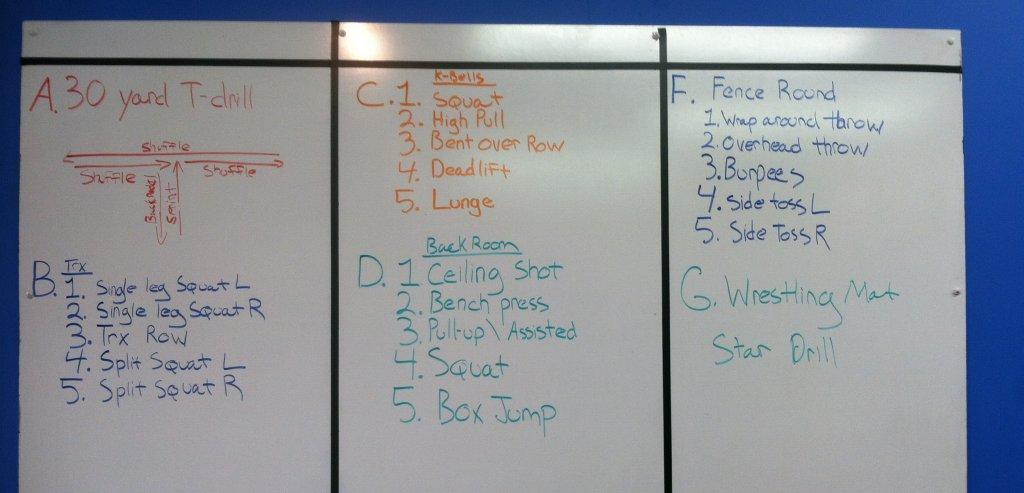 A. 30 yard T-drill
Shuffle
Shuffle
Shuffle
Back Pedal
Sprint
B. Trx
1. Single leg Squat L
2. Single leg Squat R
3. Trx Row
4. Split Squat L
5. Split Squat R
K-Bells
C. 1. Squat
2. High Pull
3. Bent over Row
4. Deadlift
5. Lunge
Back Room
D. 1 Ceiling Shot
2. Bench press
3. Pull-up \ Assisted
4. Squat
5. Box Jump
F. Fence Round
1. Wrap around throw
2. Overhead throw
3. Burpees
4. Side toss L
5. Side Toss R
G. Wrestling Mat
Star Drill